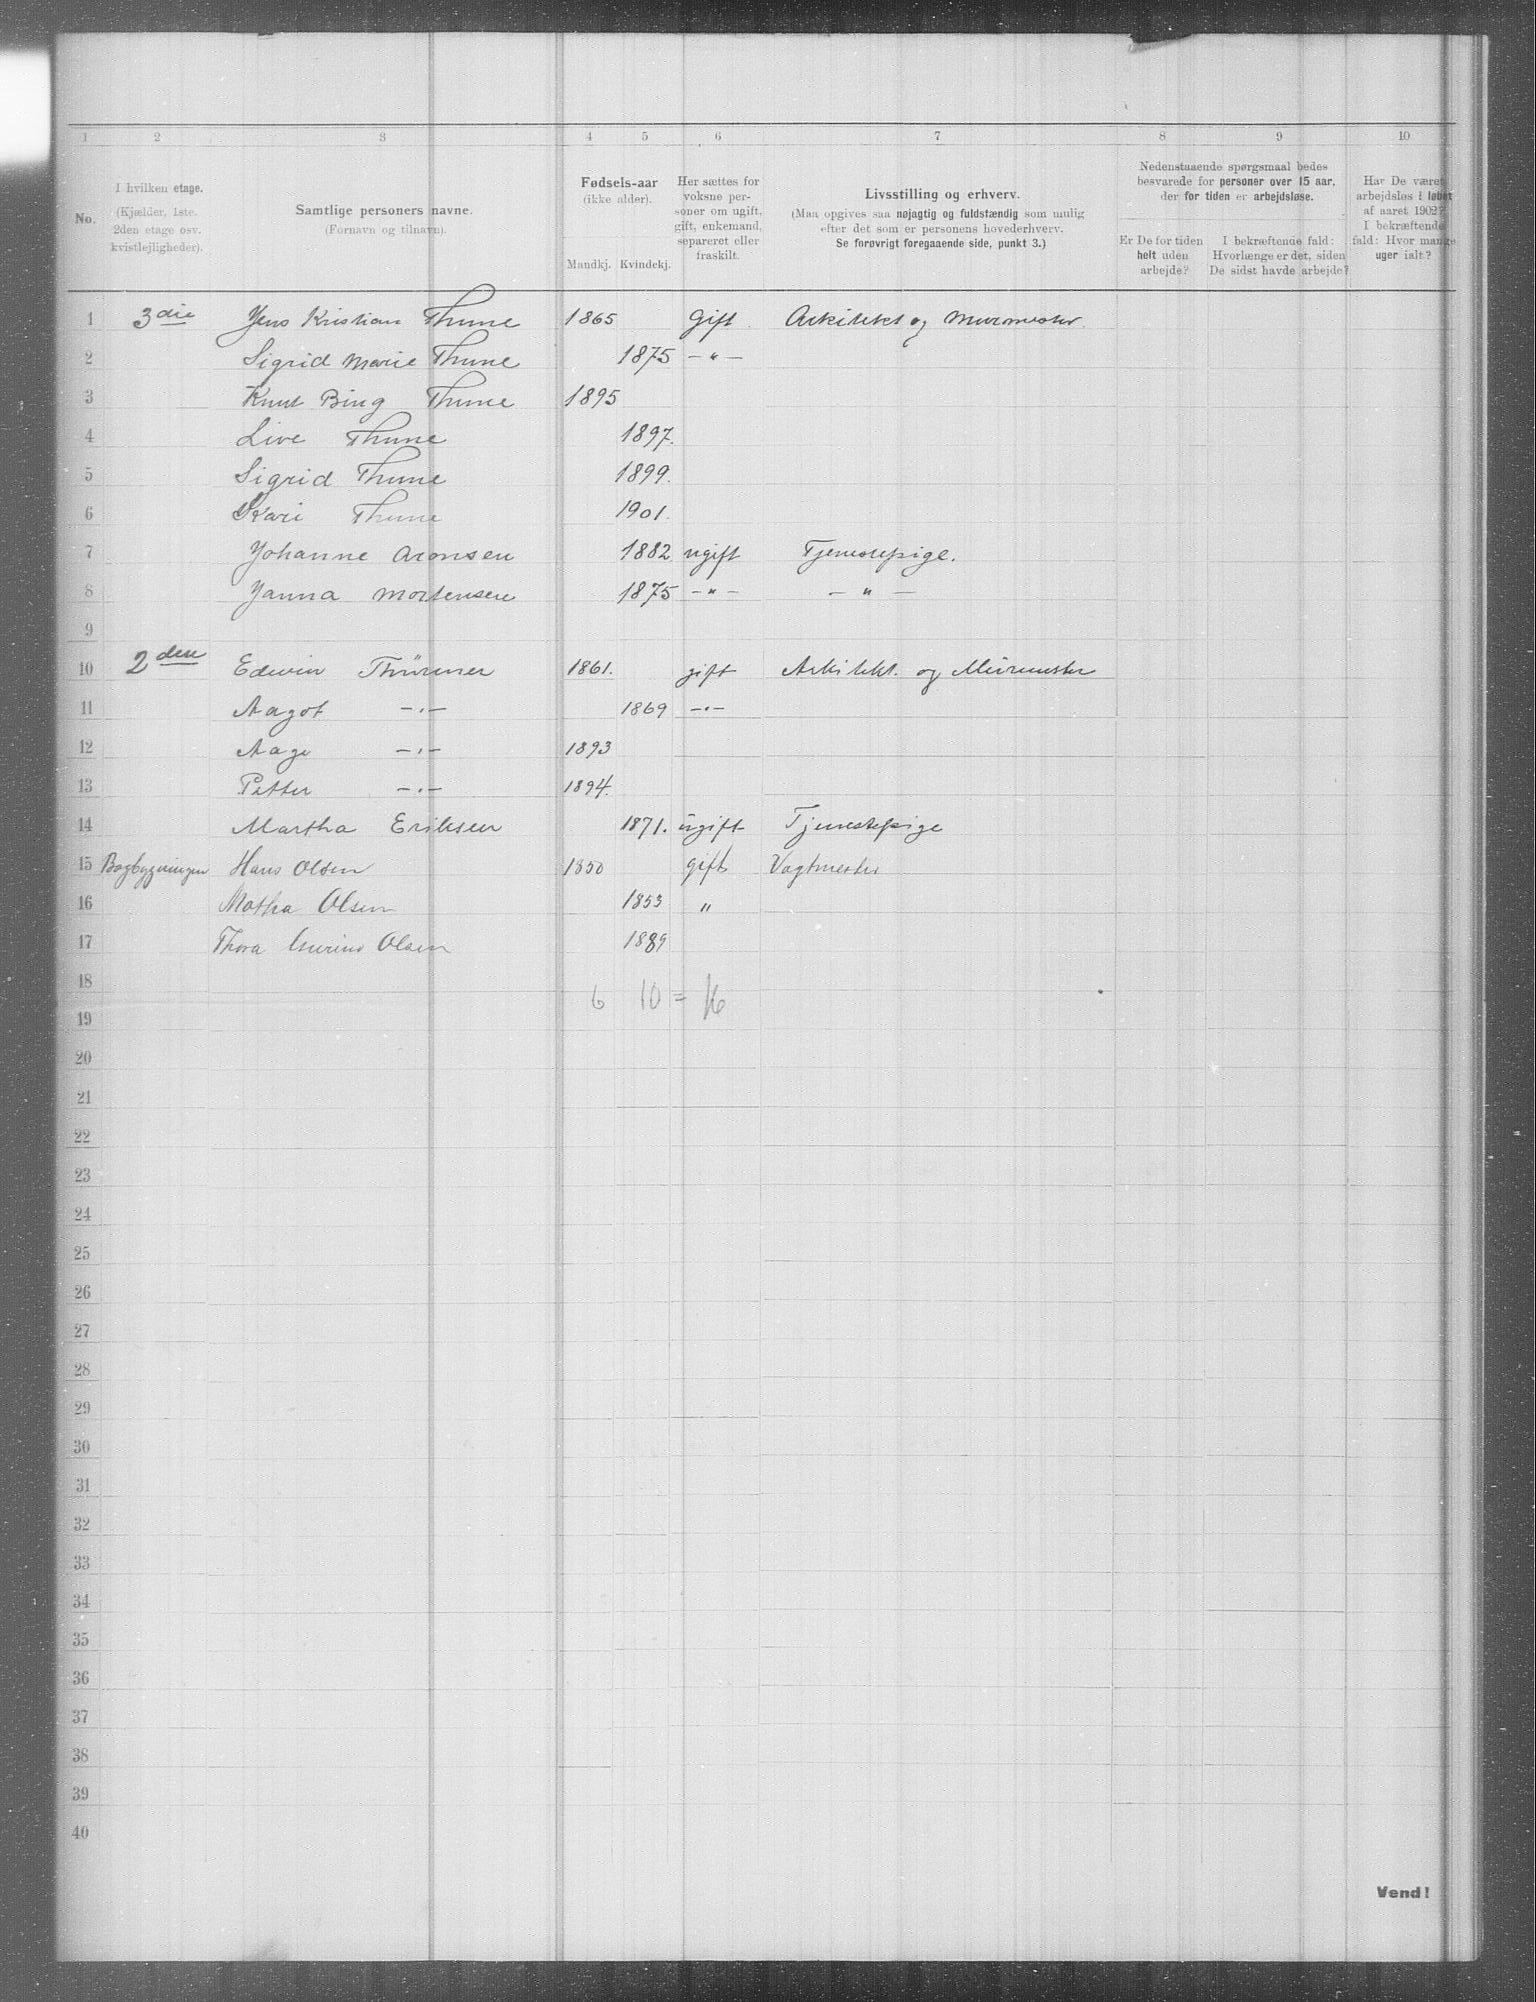 1 2 3 4 5 6 7 8 9 10
No.
I hvilken etage.
(Kjælder, 1ste.
2den etage osv.
kvistlejligheder).
Samtlige personers navne.
(Fornavn og tilnavn).
Fødsels-aar
(ikke alder).
Mandkj. Kvindekj.
Her sættes for
voksne per-
soner om ugift,
gift, enkemand,
separeret eller
fraskilt.
Livsstilling og erhverv.
(Maa opgives saa nøjagtig og fuldstændig som mulig
efter det som er personens hovederhverv.
Se forøvrigt foregaaende side, punkt 3.)
Nedenstaaende spørgsmaal bedes
besvarede for personer over 15 aar,
der for tiden er arbejdsløse.
Er De for tiden
helt uden
arbejde?
I bekræftende fald:
Hvorlænge er det, siden
De sidst havde arbejde?
Har De været
arbejdsløs i løbet
af aaret 1902?
I bekræftende
fald: Hvor mange
uger ialt?
1 3die Jens Kristian Thune 1865 Gift Arkitekt og Murmester.
2 Sigrid Marie Thune 1875 — " —
3 Knut Bing Thune 1895
4 Live Thune 1897.
5 Sigrid Thune 1899.
6 Kari Thune 1901.
7 Johanne Aronsen 1882 ugift Tjenestepige.
8 Janna Mortensen 1875 — " — — " —
9
10 2den Edwin Thürmer 1861. gift Arkitekt. og Murmester
11 Aagot — " — 1869 — " —
12 Aage — " — 1893
13 Petter — " — 1894.
14 Martha Eriksen 1871. ugift Tjenestepige
15 Bagbygningen Hans Olsen 1850 gift Vagtmester
16 Matha Olsen 1853 "
17 Thora Olsen 1889
18 6 10 = 16
19
20
21
22
23
24
25
26
27
28
29
30
31
32
33
34
35
36
37
38
39
40
Vend!